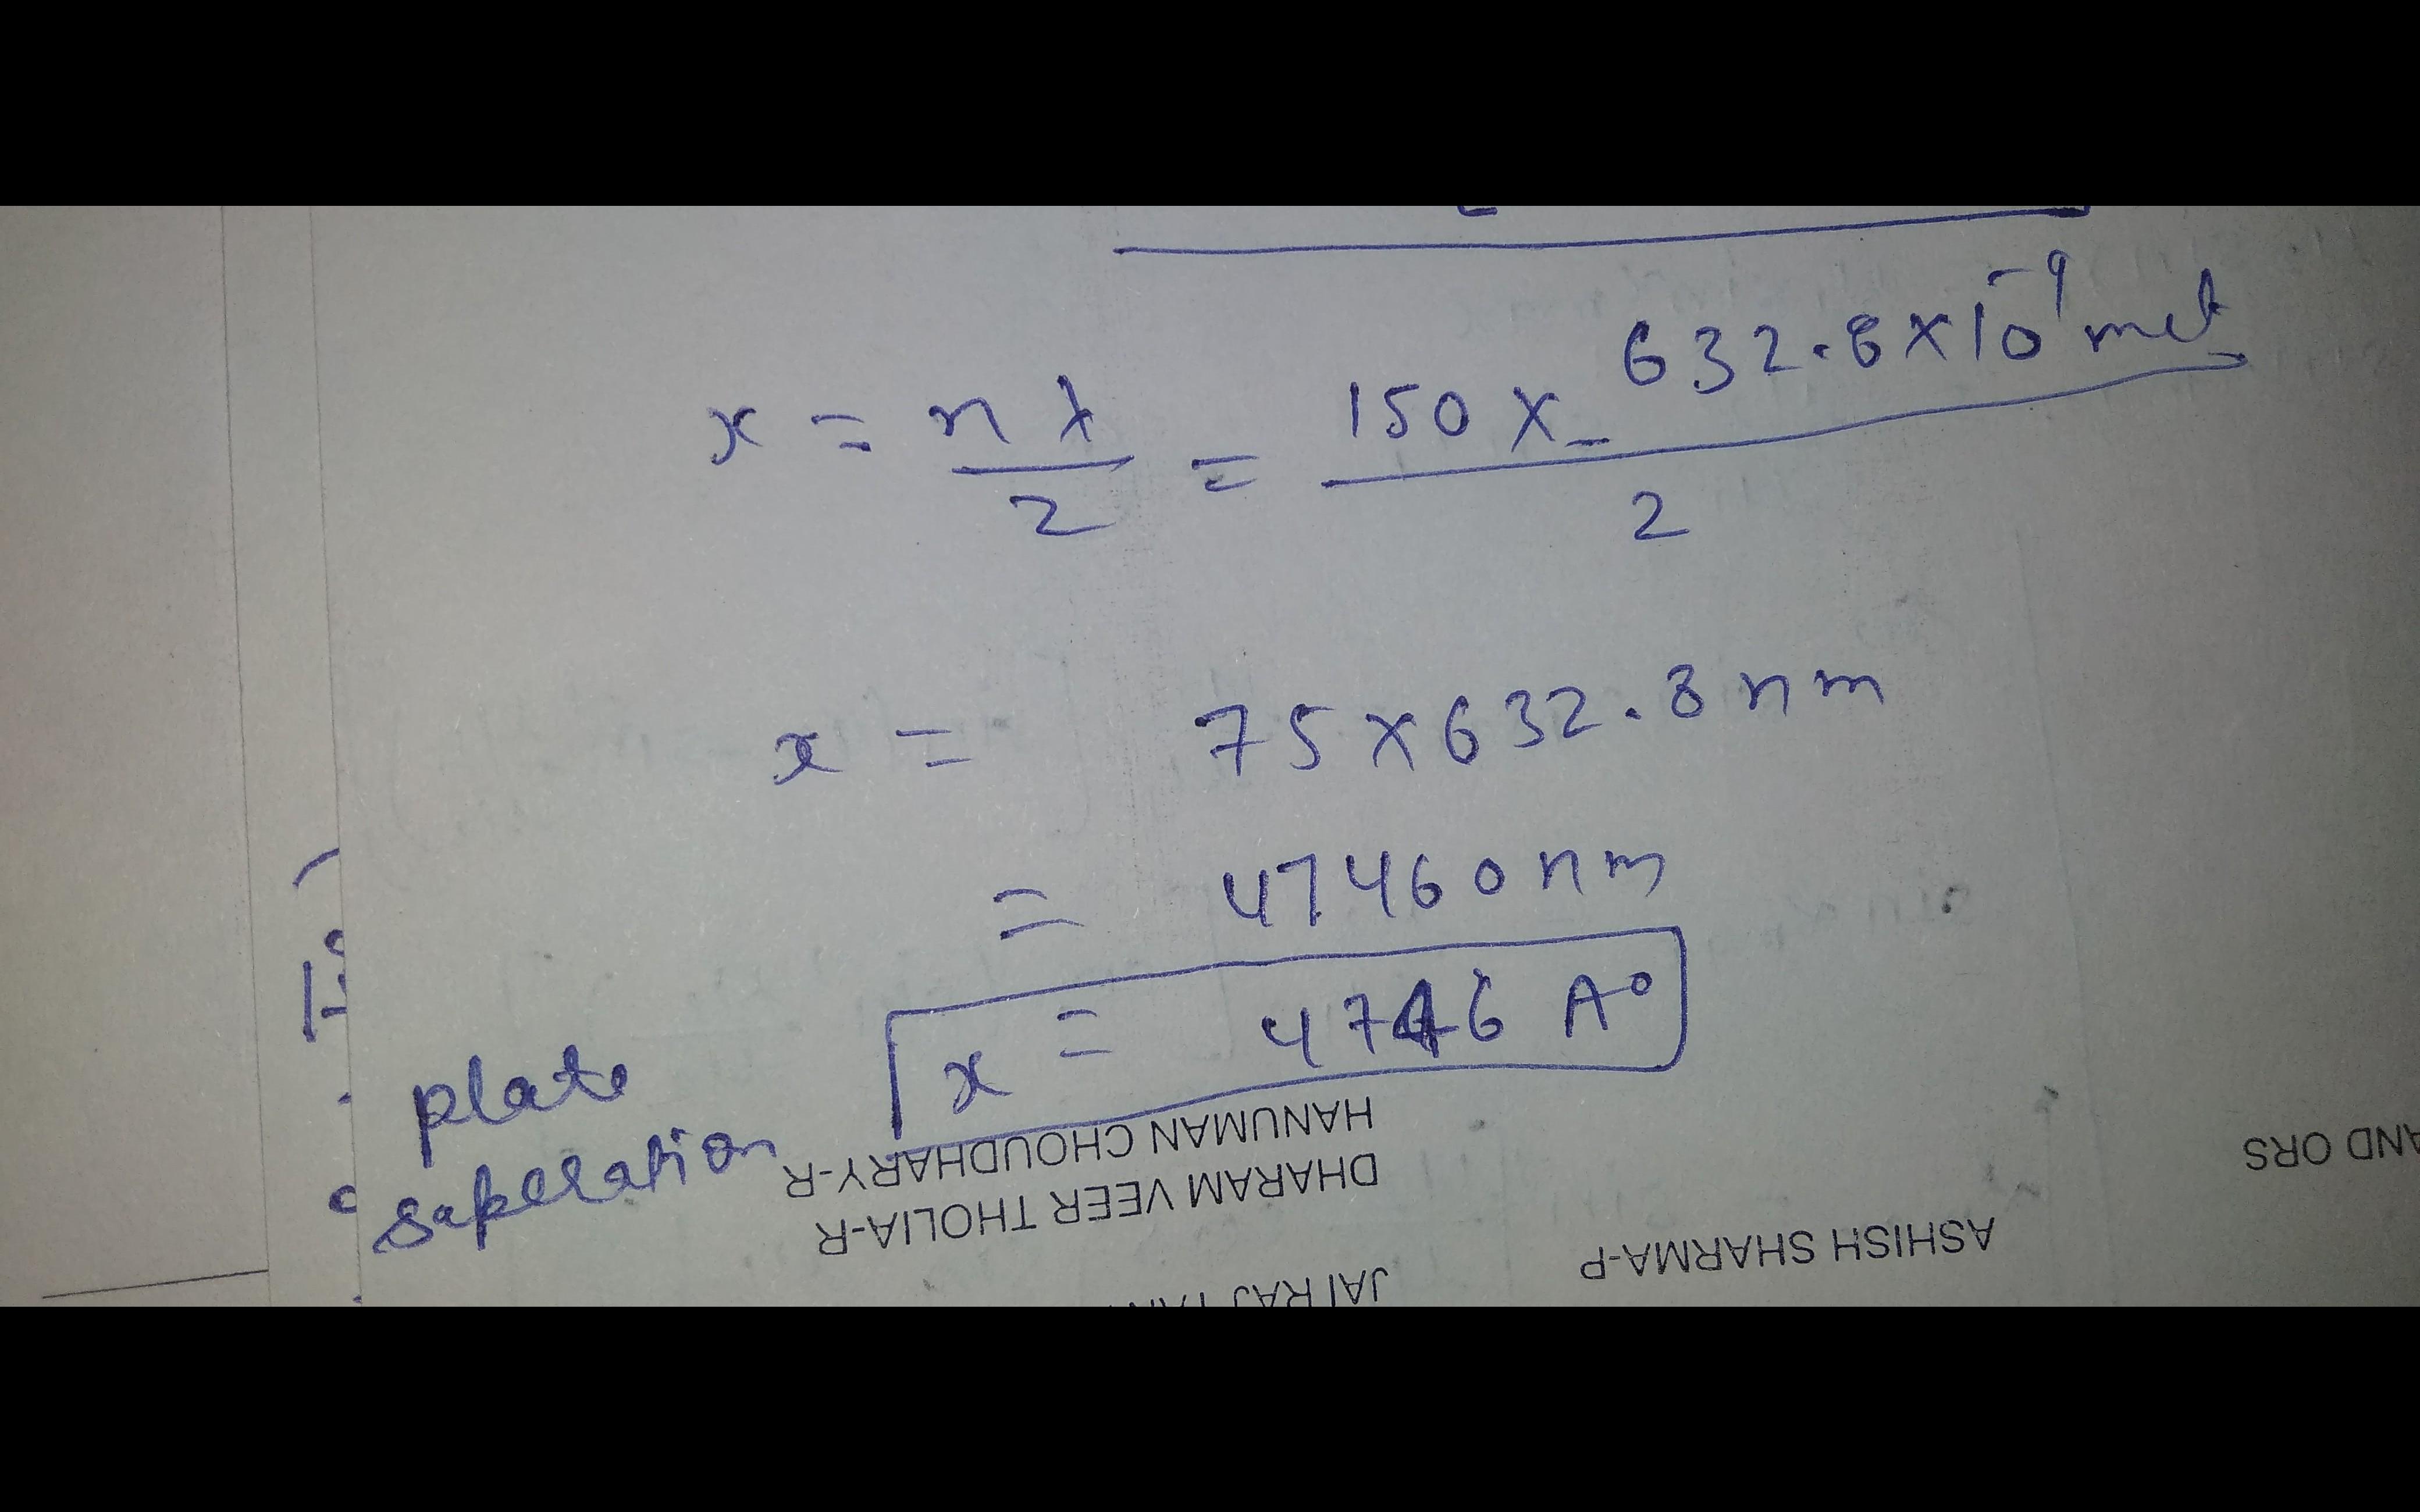 x = nλ/2 = 150 × 632.8×10⁻⁹ met/2
x = 75×632.8 nm
= 47460 nm
x = 4746 A°
plate
saperation
HANUMAN CHOUDHARY-R
DHARAM VEER THOLIA-R
AND ORS
ASHISH SHARMA-P
JAI RAJ